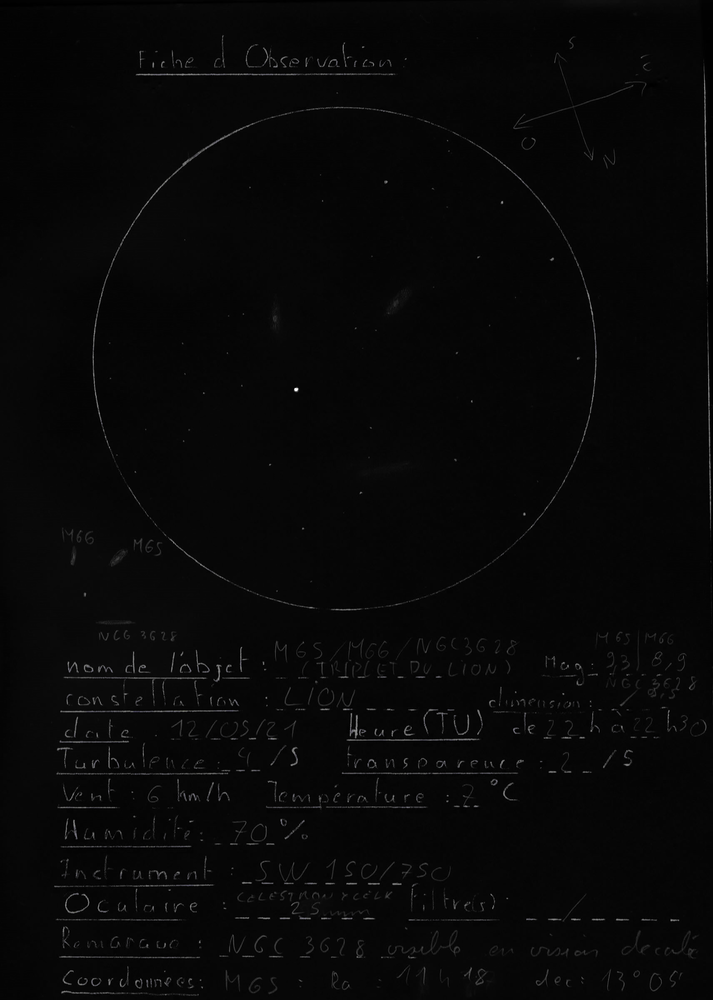 Fiche d'Observation:
S
E
O
N
M66
M65
NGC 3628
M65 | M66
nom de l'objet : M65/M66/NGC3628 Mag: 9,3 | 8,9
(TRIPLET DU LION) NGC 3628
constellation : LION dimension: /
date : 12/05/21 Heure (TU) de 22h à 22h30
Turbulence: 4 /5 transparence: 2 /5
Vent : 6 km/h Température : 7 °C
Humidité: 70 %
Instrument : SW 150/750
CELESTRON XCELX
Oculaire : 25mm Filtre(s): /
Remarque : NGC 3628 visible en vision décalé
Coordonnées: M65 : Ra : 11h18 dec: 13° 05'